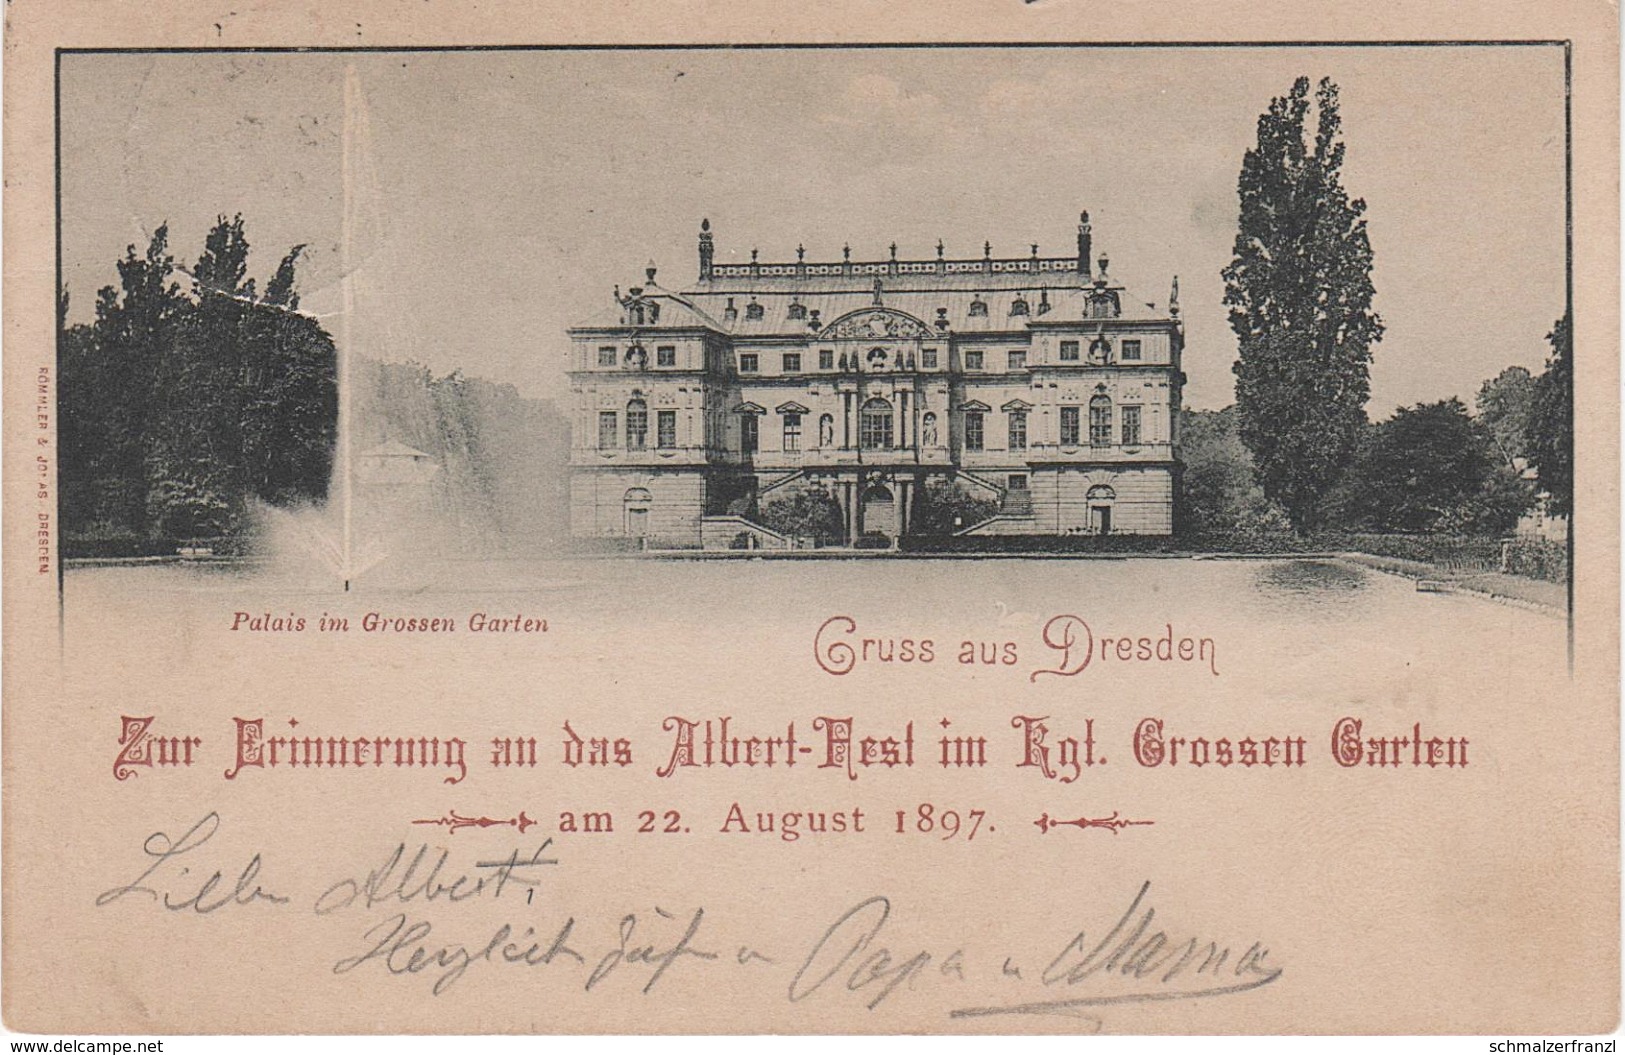 RÖMMLER & JONAS, DRESDEN.
Palais im Grossen Garten
Gruss aus Dresden
Zur Erinnerung an das Albert-Fest im Kgl. Grossen Garten
am 22. August 1897.
Lieber Albert!
Papa u Mama
www.delcampe.net
schmalzerfranzl